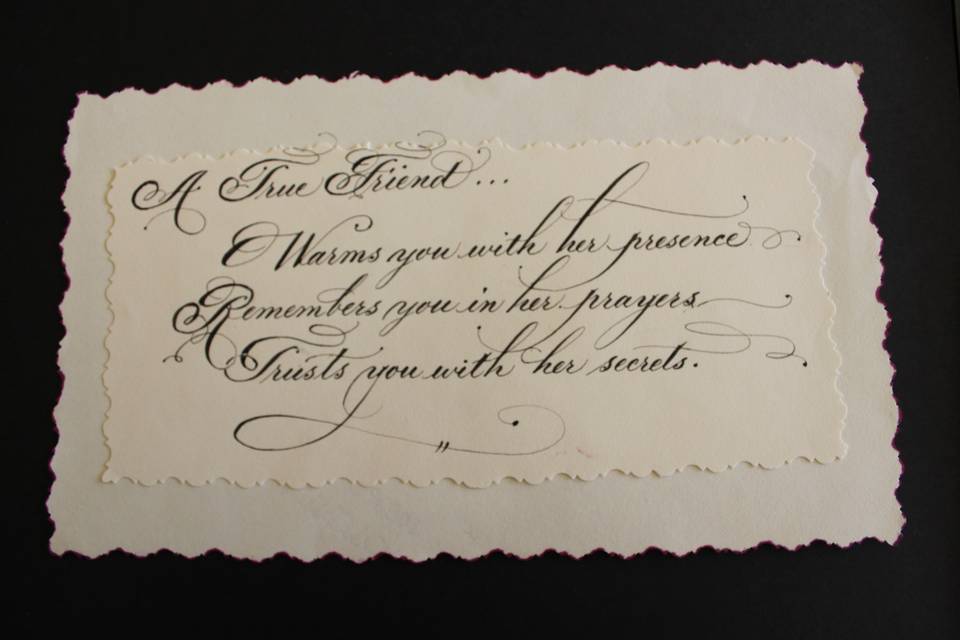 A True Friend...
Warms you with her presence
Remembers you in her prayers
Trusts you with her secrets.